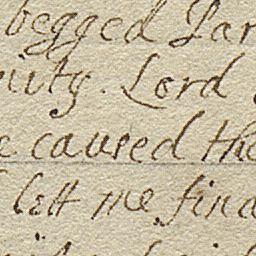 begged Par
. Lord
caused the
lett me find